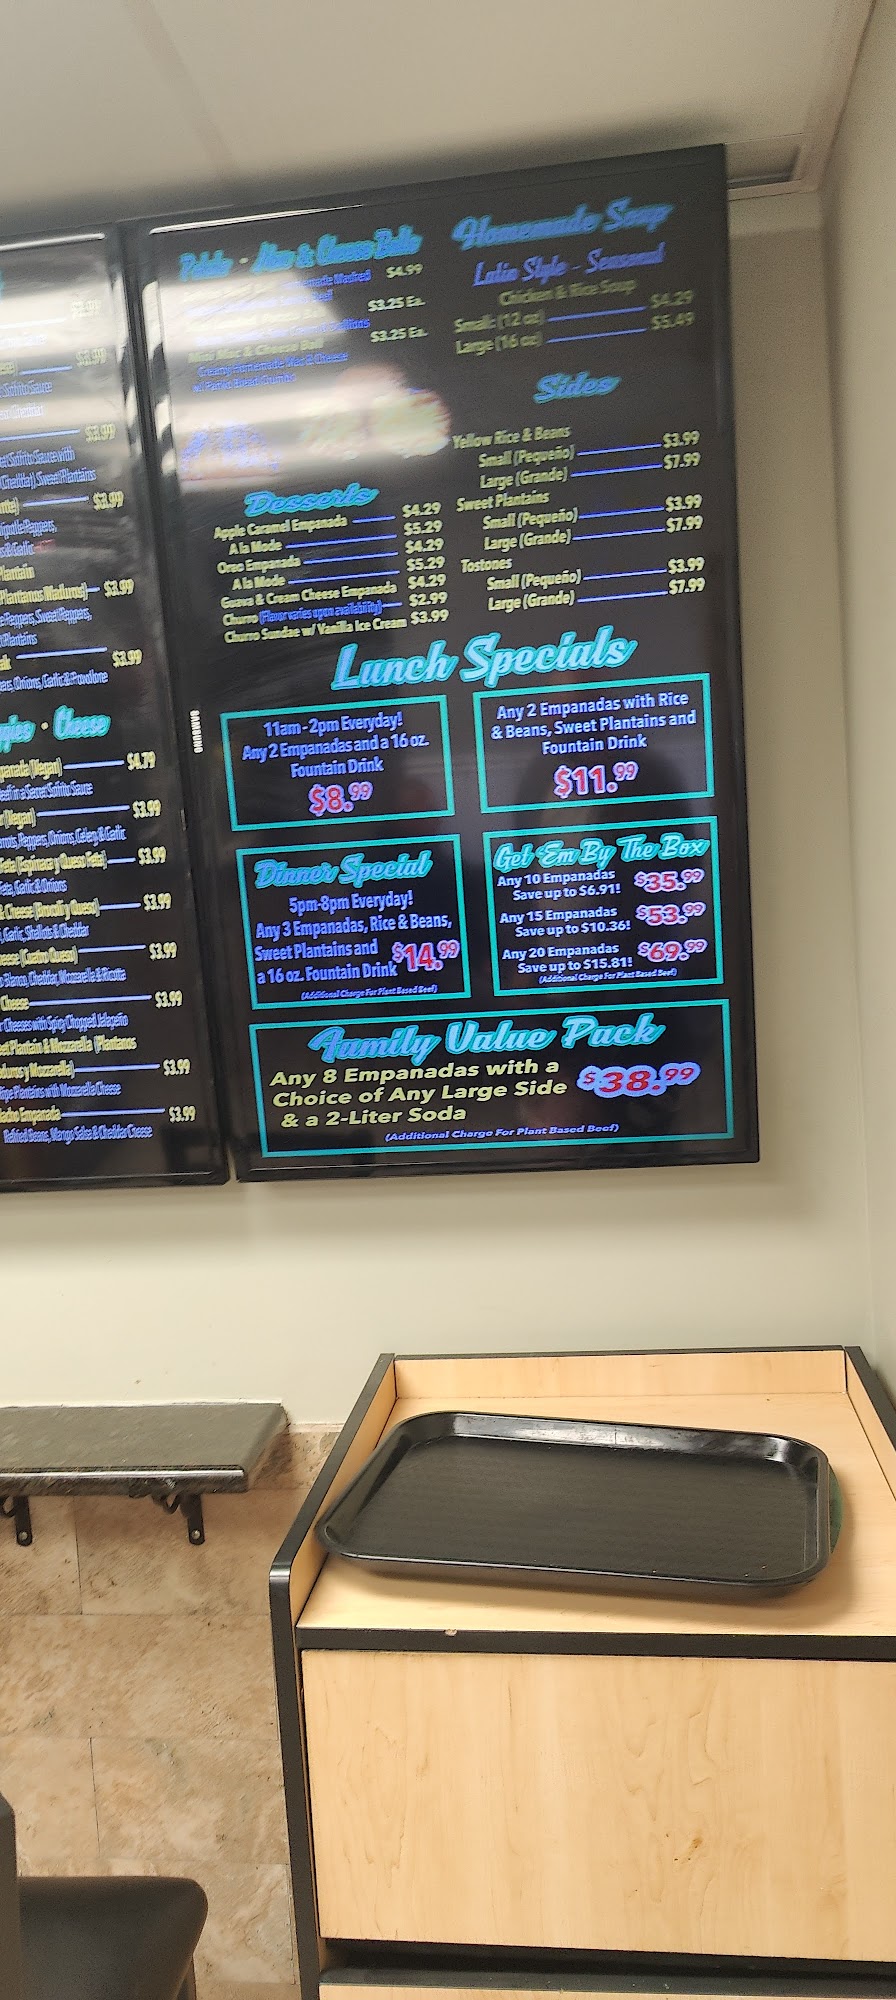 $3.99
$3.99
$3.99
Sweet Plantains
$3.99
Plantain
(Plantanos Maduros) $3.99
Peppers, Sweet Peppers,
Plantains
$3.99
Onions, Garlic & Provolone
Cheese
(Vegan) $4.79
Beef in a Secret Sofrito Sauce
(Vegan) $3.99
Peppers, Onions, Celery & Garlic
Feta (Espinaca y Queso Feta) $3.99
Feta, Garlic & Onions
& Cheese (Brocoli y Queso) $3.99
Garlic, Shallots & Cheddar
(Cuatro Quesos) $3.99
Blanco, Cheddar, Mozzarella & Ricotta
Cheese $3.99
Cheeses with Spicy Chopped Jalapeño
Plantain & Mozzarella (Plantanos
Maduros y Mozzarella) $3.99
Ripe Plantains with Mozzarella Cheese
Nacho Empanada $3.99
Refried Beans, Mango Salsa & Cheddar Cheese
Mac & Cheese Balls
$4.99
$3.25 Ea.
Mini Mac & Cheese Ball $3.25 Ea.
Creamy Homemade Mac & Cheese
w/ Panko Bread Crumbs
Desserts
Apple Caramel Empanada $4.29
A la Mode $5.29
Oreo Empanada $4.29
A la Mode $5.29
Guava & Cream Cheese Empanada $4.29
Churro (Flavor varies upon availability) $2.99
Churro Sundae w/ Vanilla Ice Cream $3.99
Homemade Soup
Latin Style - Seasonal
Chicken & Rice Soup
Small: (12 oz) $4.29
Large (16 oz) $5.49
Sides
Yellow Rice & Beans
Small (Pequeño) $3.99
Large (Grande) $7.99
Sweet Plantains
Small (Pequeño) $3.99
Large (Grande) $7.99
Tostones
Small (Pequeño) $3.99
Large (Grande) $7.99
Lunch Specials
11am-2pm Everyday!
Any 2 Empanadas and a 16 oz.
Fountain Drink
$8.99
Any 2 Empanadas with Rice
& Beans, Sweet Plantains and
Fountain Drink
$11.99
Dinner Special
5pm-8pm Everyday!
Any 3 Empanadas, Rice & Beans,
Sweet Plantains and
a 16 oz. Fountain Drink $14.99
(Additional Charge For Plant Based Beef)
Get 'Em By The Box
Any 10 Empanadas $35.99
Save up to $6.91!
Any 15 Empanadas $53.99
Save up to $10.36!
Any 20 Empanadas $69.99
Save up to $15.81!
(Additional Charge For Plant Based Beef)
Family Value Pack
Any 8 Empanadas with a
Choice of Any Large Side $38.99
& a 2-Liter Soda
(Additional Charge For Plant Based Beef)
SAMSUNG